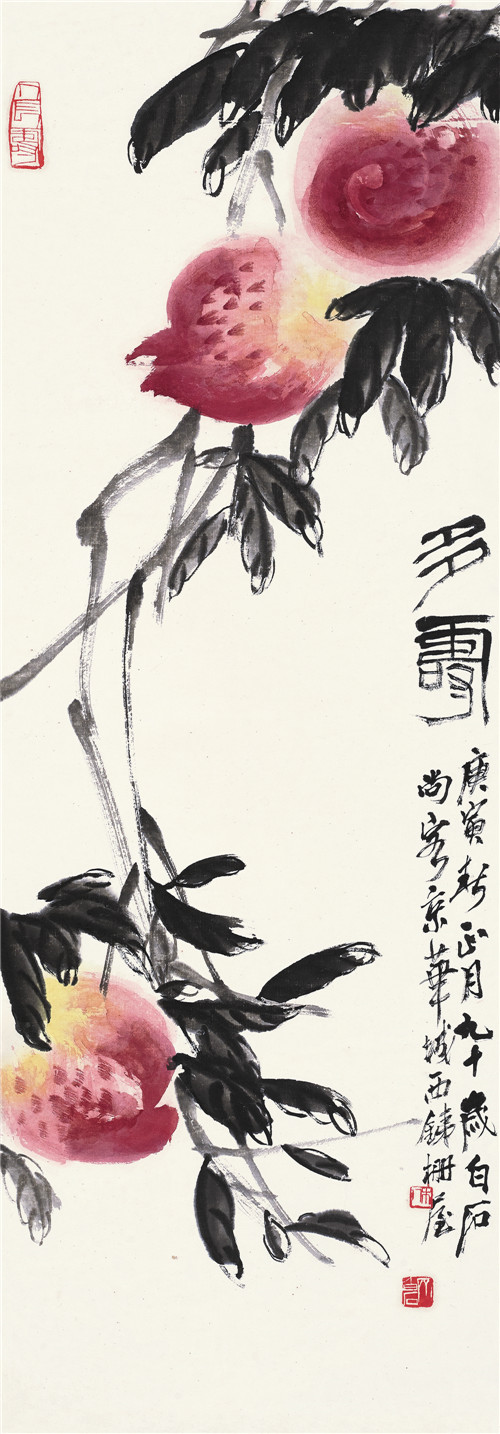 多壽
庚寅新正月九十歲白石
尚客京華城西鐵柵屋
人長壽